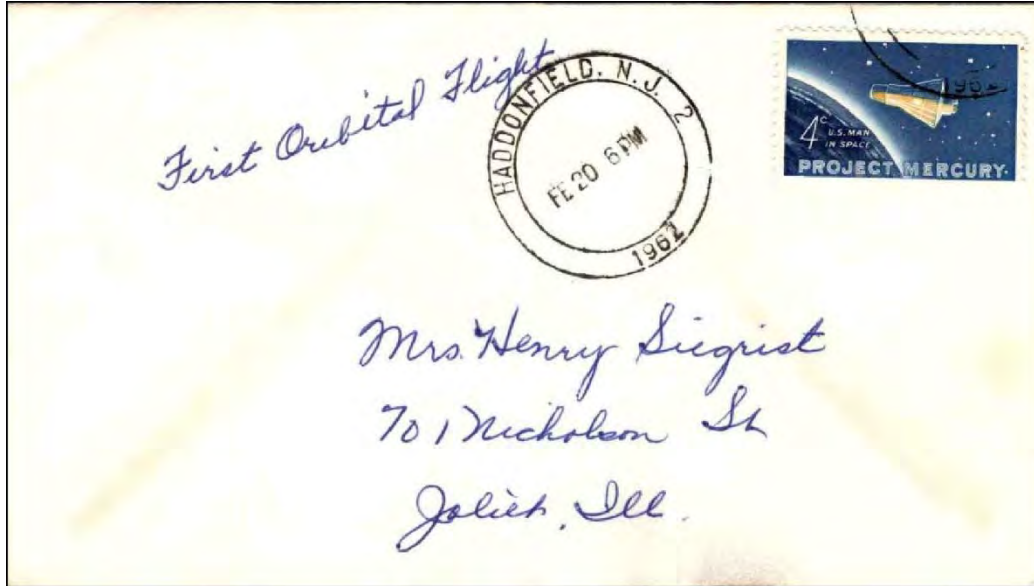 First Oribital Flight
HADDONFIELD, N.J. 2
FE 20 6 PM
1962
4c
U.S. MAN
IN SPACE
PROJECT MERCURY
196
Mrs. Henry Siegrist
701 Nicholson St
Joliet, Ill.